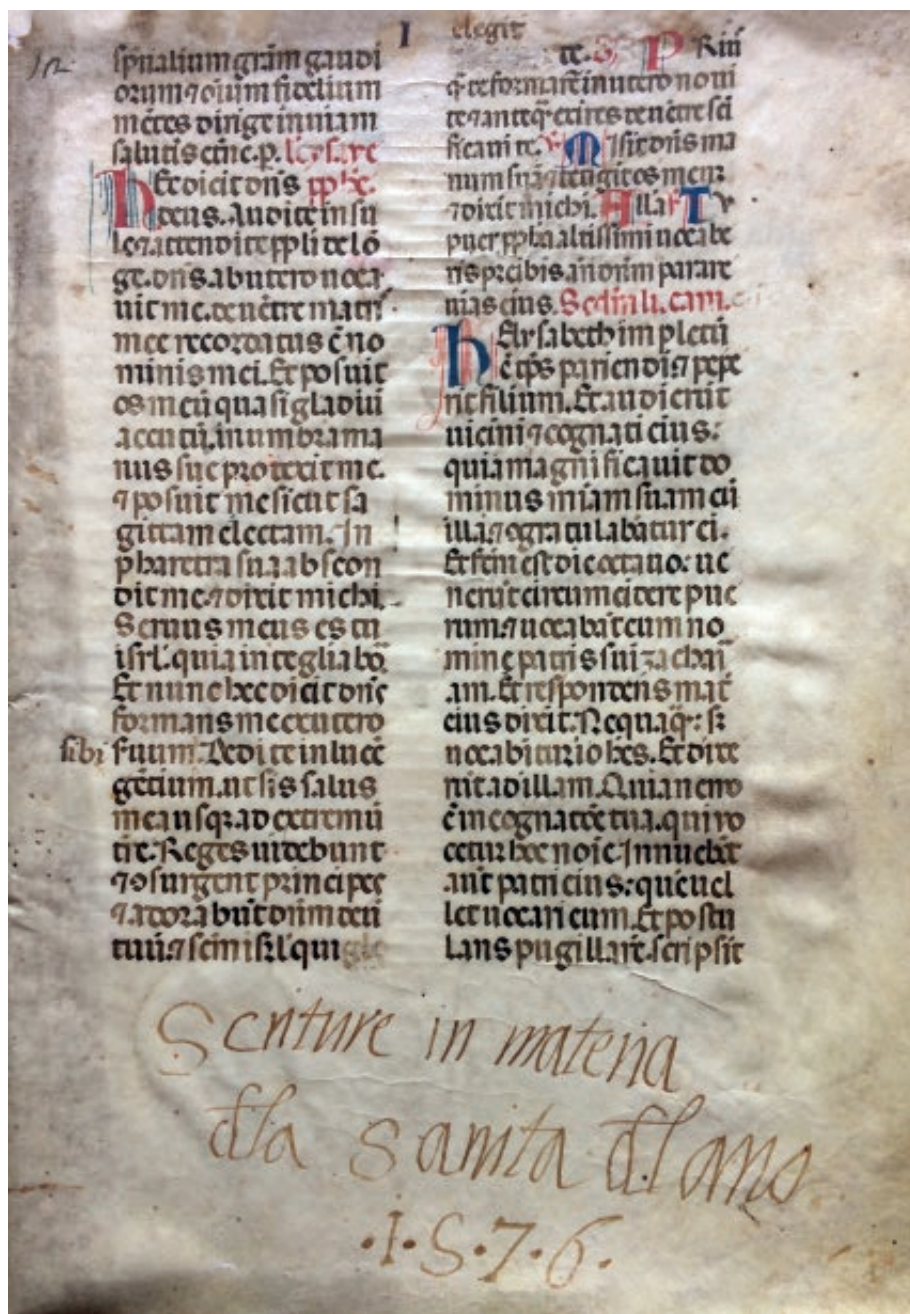 I
elegit
12
spualium gram gaudi
orum ⁊ oium fidelium
mētes dirige in uiam
salutis etne. p. lec ysaye
Hec dicit dns pphe.
deus. Audite insu
le ⁊ attendite ppli de lō
ge. dns ab utero uoca
uit me. de uētre matris
mee recordatus ē no
minis mei. Et posuit
os meū quasi gladiū
accutū. in umbra ma
nus sue protexit me.
⁊ posuit me sicut sa
gittam electam. In
pharetra sua abscon
dit me. ⁊ dixit michi.
Seruus meus es tu
isrl. quia in te gliabor
Et nunc hec dicit dns
formans me ex utero
sibi
suum. Dedi te in lucē
gētium. ut sis salus
mea usq; ad extremū
tre. Reges uidebunt
⁊ ɔsurgent principes
⁊ adorabūt dnm deū
tuū. ⁊ scm isrl. qui ele
te. Priusq;
q; te formarē in utero noui
te ⁊ anteq; exires de uētre sci
ficaui te. V. Misit dns ma
num suā ⁊ tetigit os meum
⁊ dixit michi. Alla V Tu
puer ppha altissimi uocabe
ris preibis an dnm parare
uias eius. Sed m lucam.
Helysabeth impletū
ē tps pariendi. ⁊ pepe
rit filium. Et audierūt
uicini ⁊ cognati eius:
quia magnificauit do
minus miam suam cū
illa. ⁊ ɔgratulabātur ei.
Et fcm est die octauo: ue
nerūt circumcidere pue
rum. ⁊ uocabāt eum no
mine patris sui zachari
am. Et respondens mat
eius dixit. Nequaq; s;
uocabitur iohes. Et dixe
rūt ad illam. Quia nemo
ē in cognatōe tua. qui uo
cetur hoc noie. Innuebāt
aūt patri eius: quē uel
let uocari eum. Et postu
lans pugillarē. scripsit
Scriture in materia
dla sanita dl ano
.1.5.7.6.